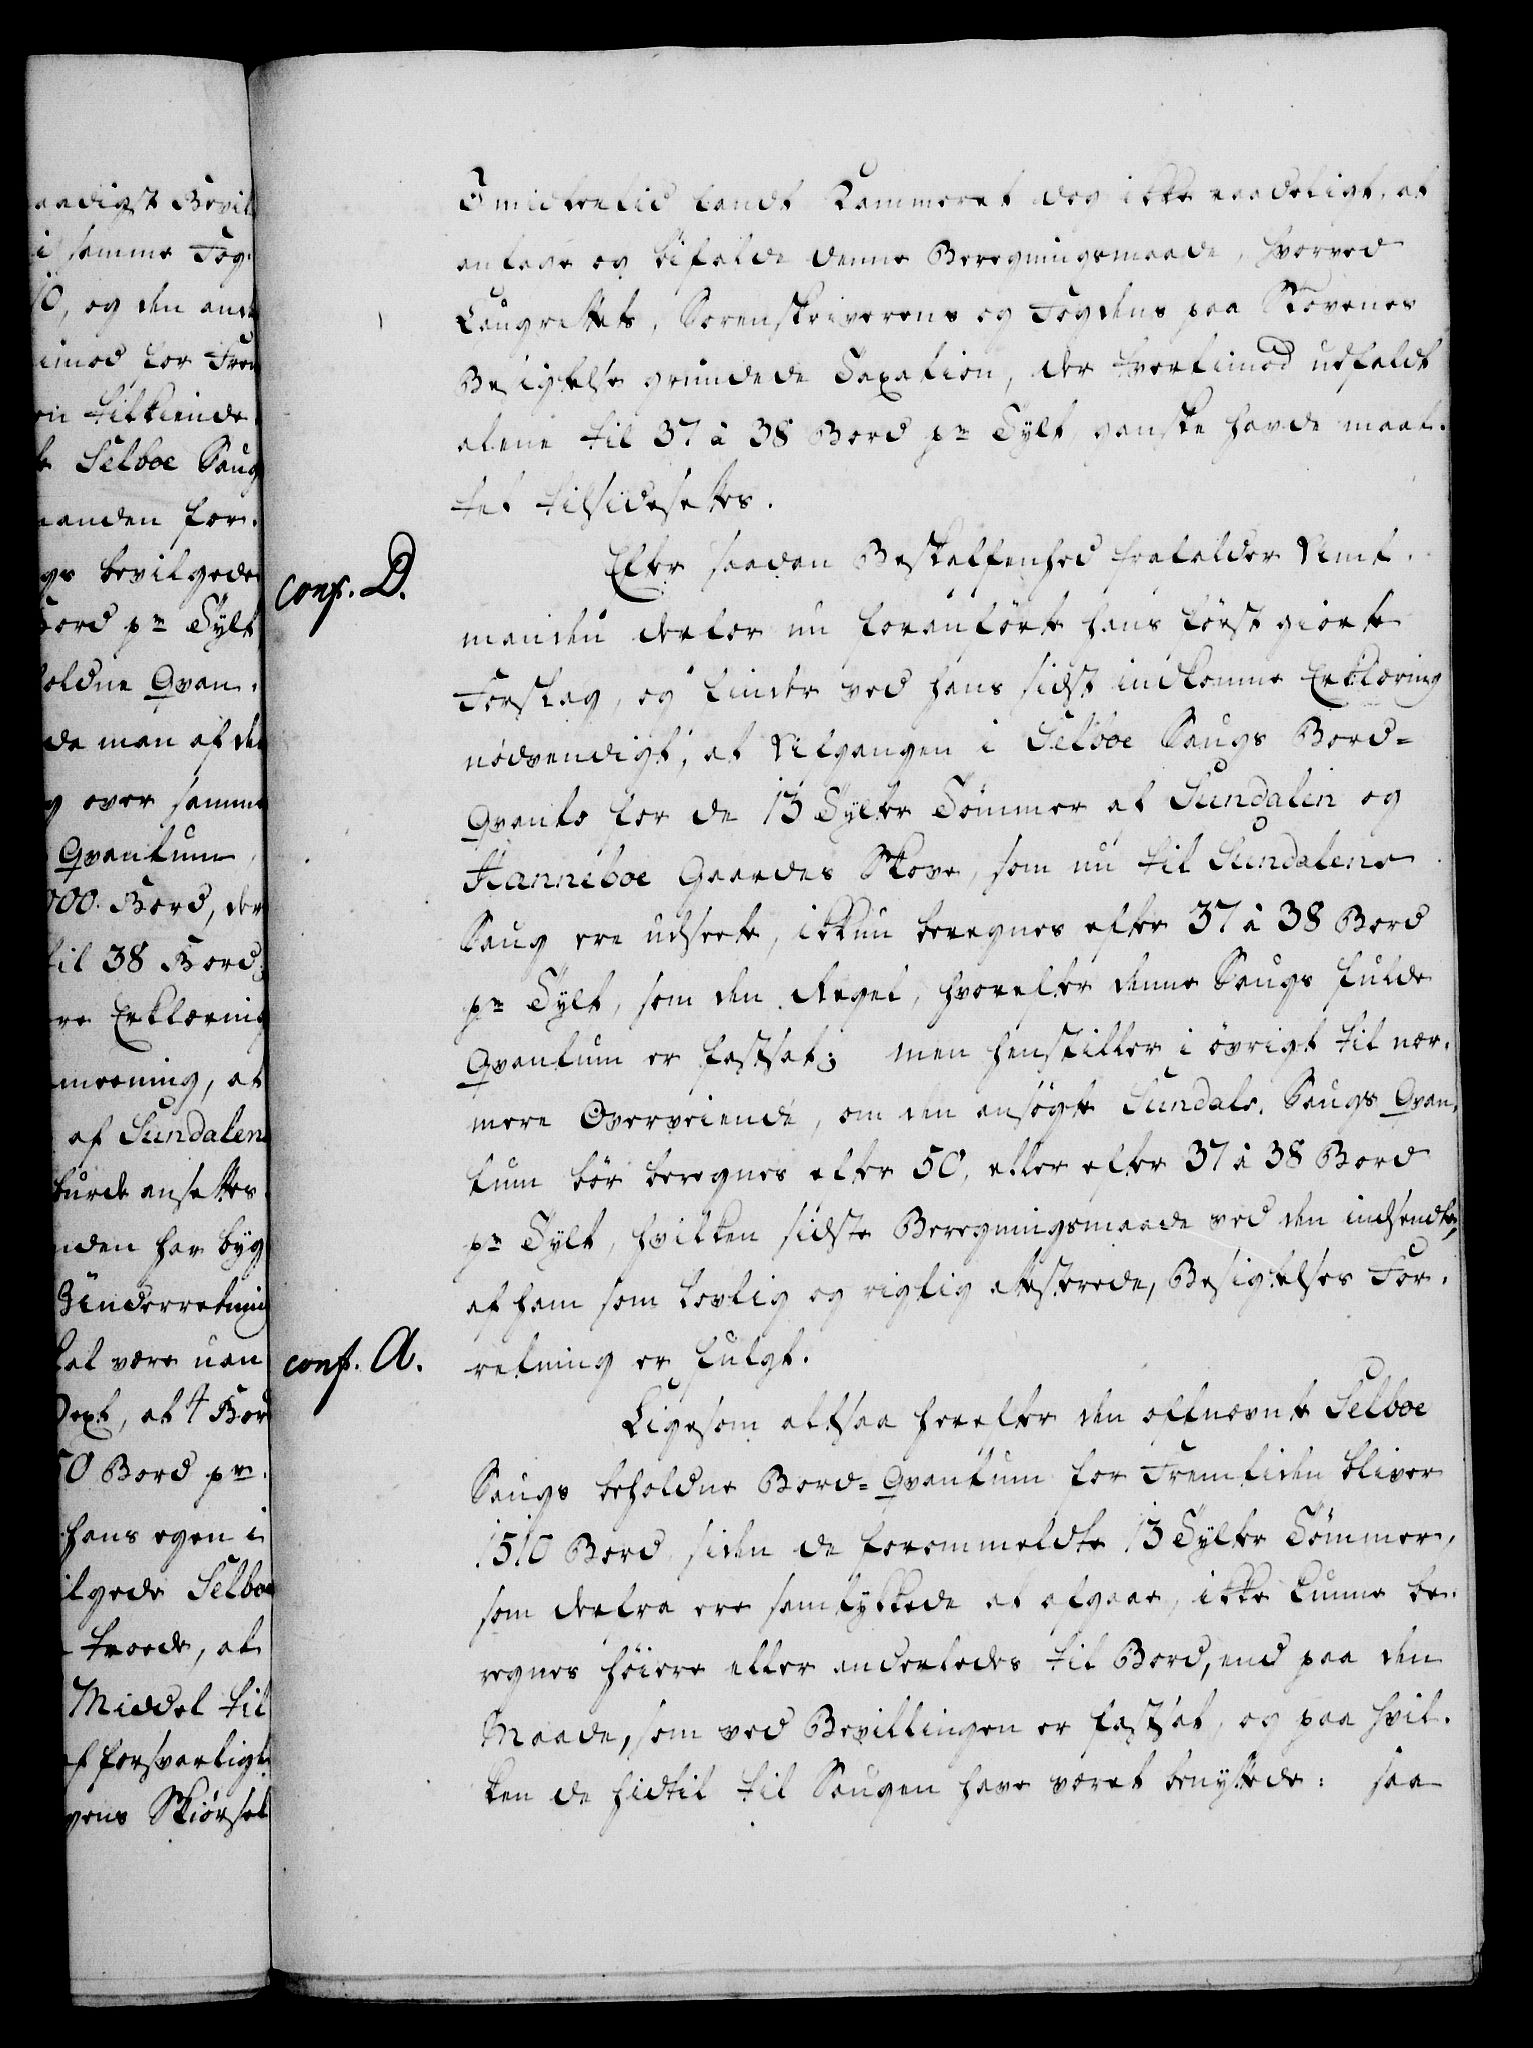 aadigst Bevil
i samme Fog¬
10, og den and
imod for Frem
en tilkiende
te Selboe Saug
manden for¬
gs bevilgede
Bord pr Tylt
holdne Qvan¬
da man af den
g over samme
Qvantum
000 Bord, der
til 38 Bord;
re Erklæring
meening, at
af Sundalens
burde ansættes
nden har byg
Underretning
skal være uan
Text, at 4 Bor
50 Bord pr
hans egen i
ilgede Selboe
troede, at
Middel til
f forsvarligt
vens Skiørsel
Imidlertid fandt Kammeret dog ikke raadeligt, at
antage og bifalde denne Beregningsmaade, hvorved
Laugrettets, Sorenskriverens og Fogdens paa Skovenes
Besigtelse grundede Taxation, der tvertimod udfaldt
alene til 37 à 38 Bord pr Tylt, ganske havde maat¬
tet tilsidesættes.
conf. D.
Efter saadan Beskaffenhed frafalder Amt¬
manden derfor nu foranførte hans først giorte
Forslag, og finder ved hans sidst indkomne Erklæring
nødvendigt, at Afgangen i Selboe Saugs Bord=
Qvanto for de 13 Tylter Tømmer af Sundalen og
Hanneboe Gaardes Skove, som nu til Sundalens
Saug ere udseete, ikkun beregnes efter 37 à 38 Bord
pr Tylt, som den Regel, hvorefter denne Saugs fulde
Qvantum er fastsat; men henstiller i øvrigt til nær¬
mere Overveiende, om den ansøgte Sundals Saugs Qvan¬
tum bør beregnes efter 50, eller efter 37 à 38 Bord
pr Tylt, hvilken sidste Beregningsmaade ved den indsendte,
af ham som lovlig og rigtig attesterede, Besigtelses For¬
conf. A.
retning er fulgt.
Ligesom altsaa herefter den oftnævnte Selboe
Saugs beholdne Bord=Qvantum for Fremtiden bliver
1510 Bord, siden de forommeldte 13 Tylter Tømmer,
som derfra ere samtykkede at afgaae, ikke kunne be¬
regnes høiere eller anderledes til Bord, end paa den
Maade, som ved Bevillingen er fastsat, og paa hvil¬
ken de hidtil til Saugen have været benyttede: saa